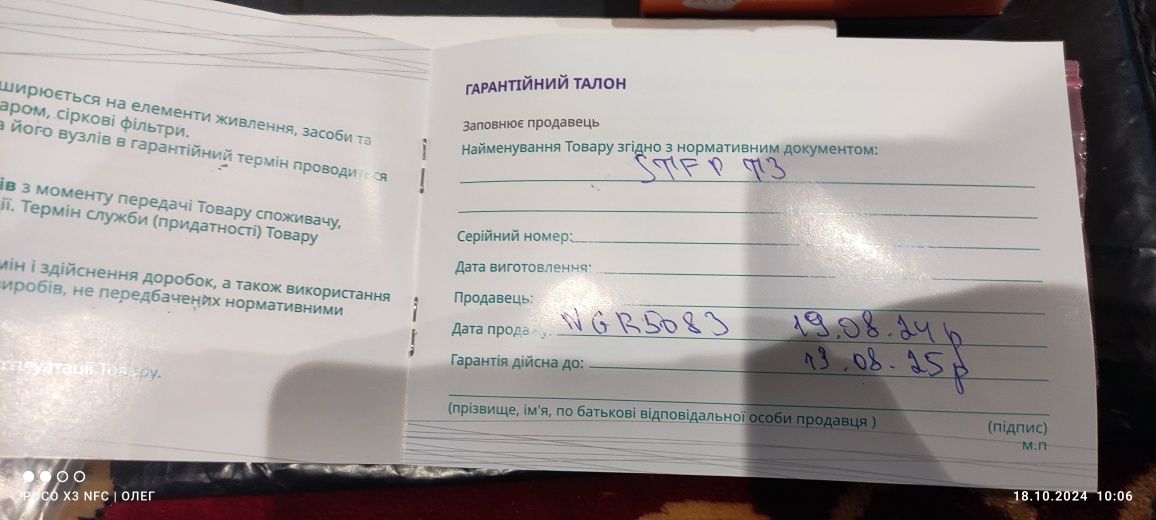 ширюється на елементи живлення, засоби та
аром, сіркові фільтри.
а його вузлів в гарантійний термін проводиться
ів з моменту передачі Товару споживачу,
ії. Термін служби (придатності) Товару
мін і здійснення доробок, а також використання
иробів, не передбачених нормативними
сплуатації Товару.
ГАРАНТІЙНИЙ ТАЛОН
Заповнює продавець
Найменування Товару згідно з нормативним документом:
Серійний номер:
Дата виготовлення:
Продавець:
Дата продажу: NGR5083 19.08.24р
Гарантія дійсна до: 19.08.25р
(прізвище, ім'я, по батькові відповідальної особи продавця )
(підпис)
м.п
POCO X3 NFC | ОЛЕГ
18.10.2024 10:06